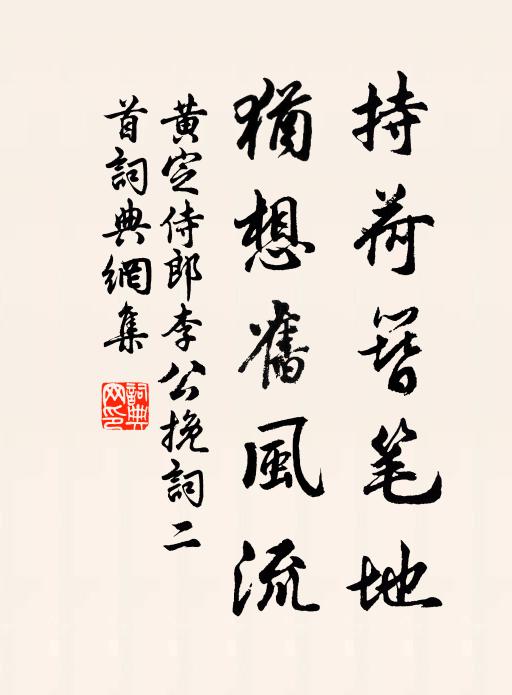 持荷簪笔地
猶想舊風流
黄定侍郎李公挽詞二
首詞典網集
詞典網印